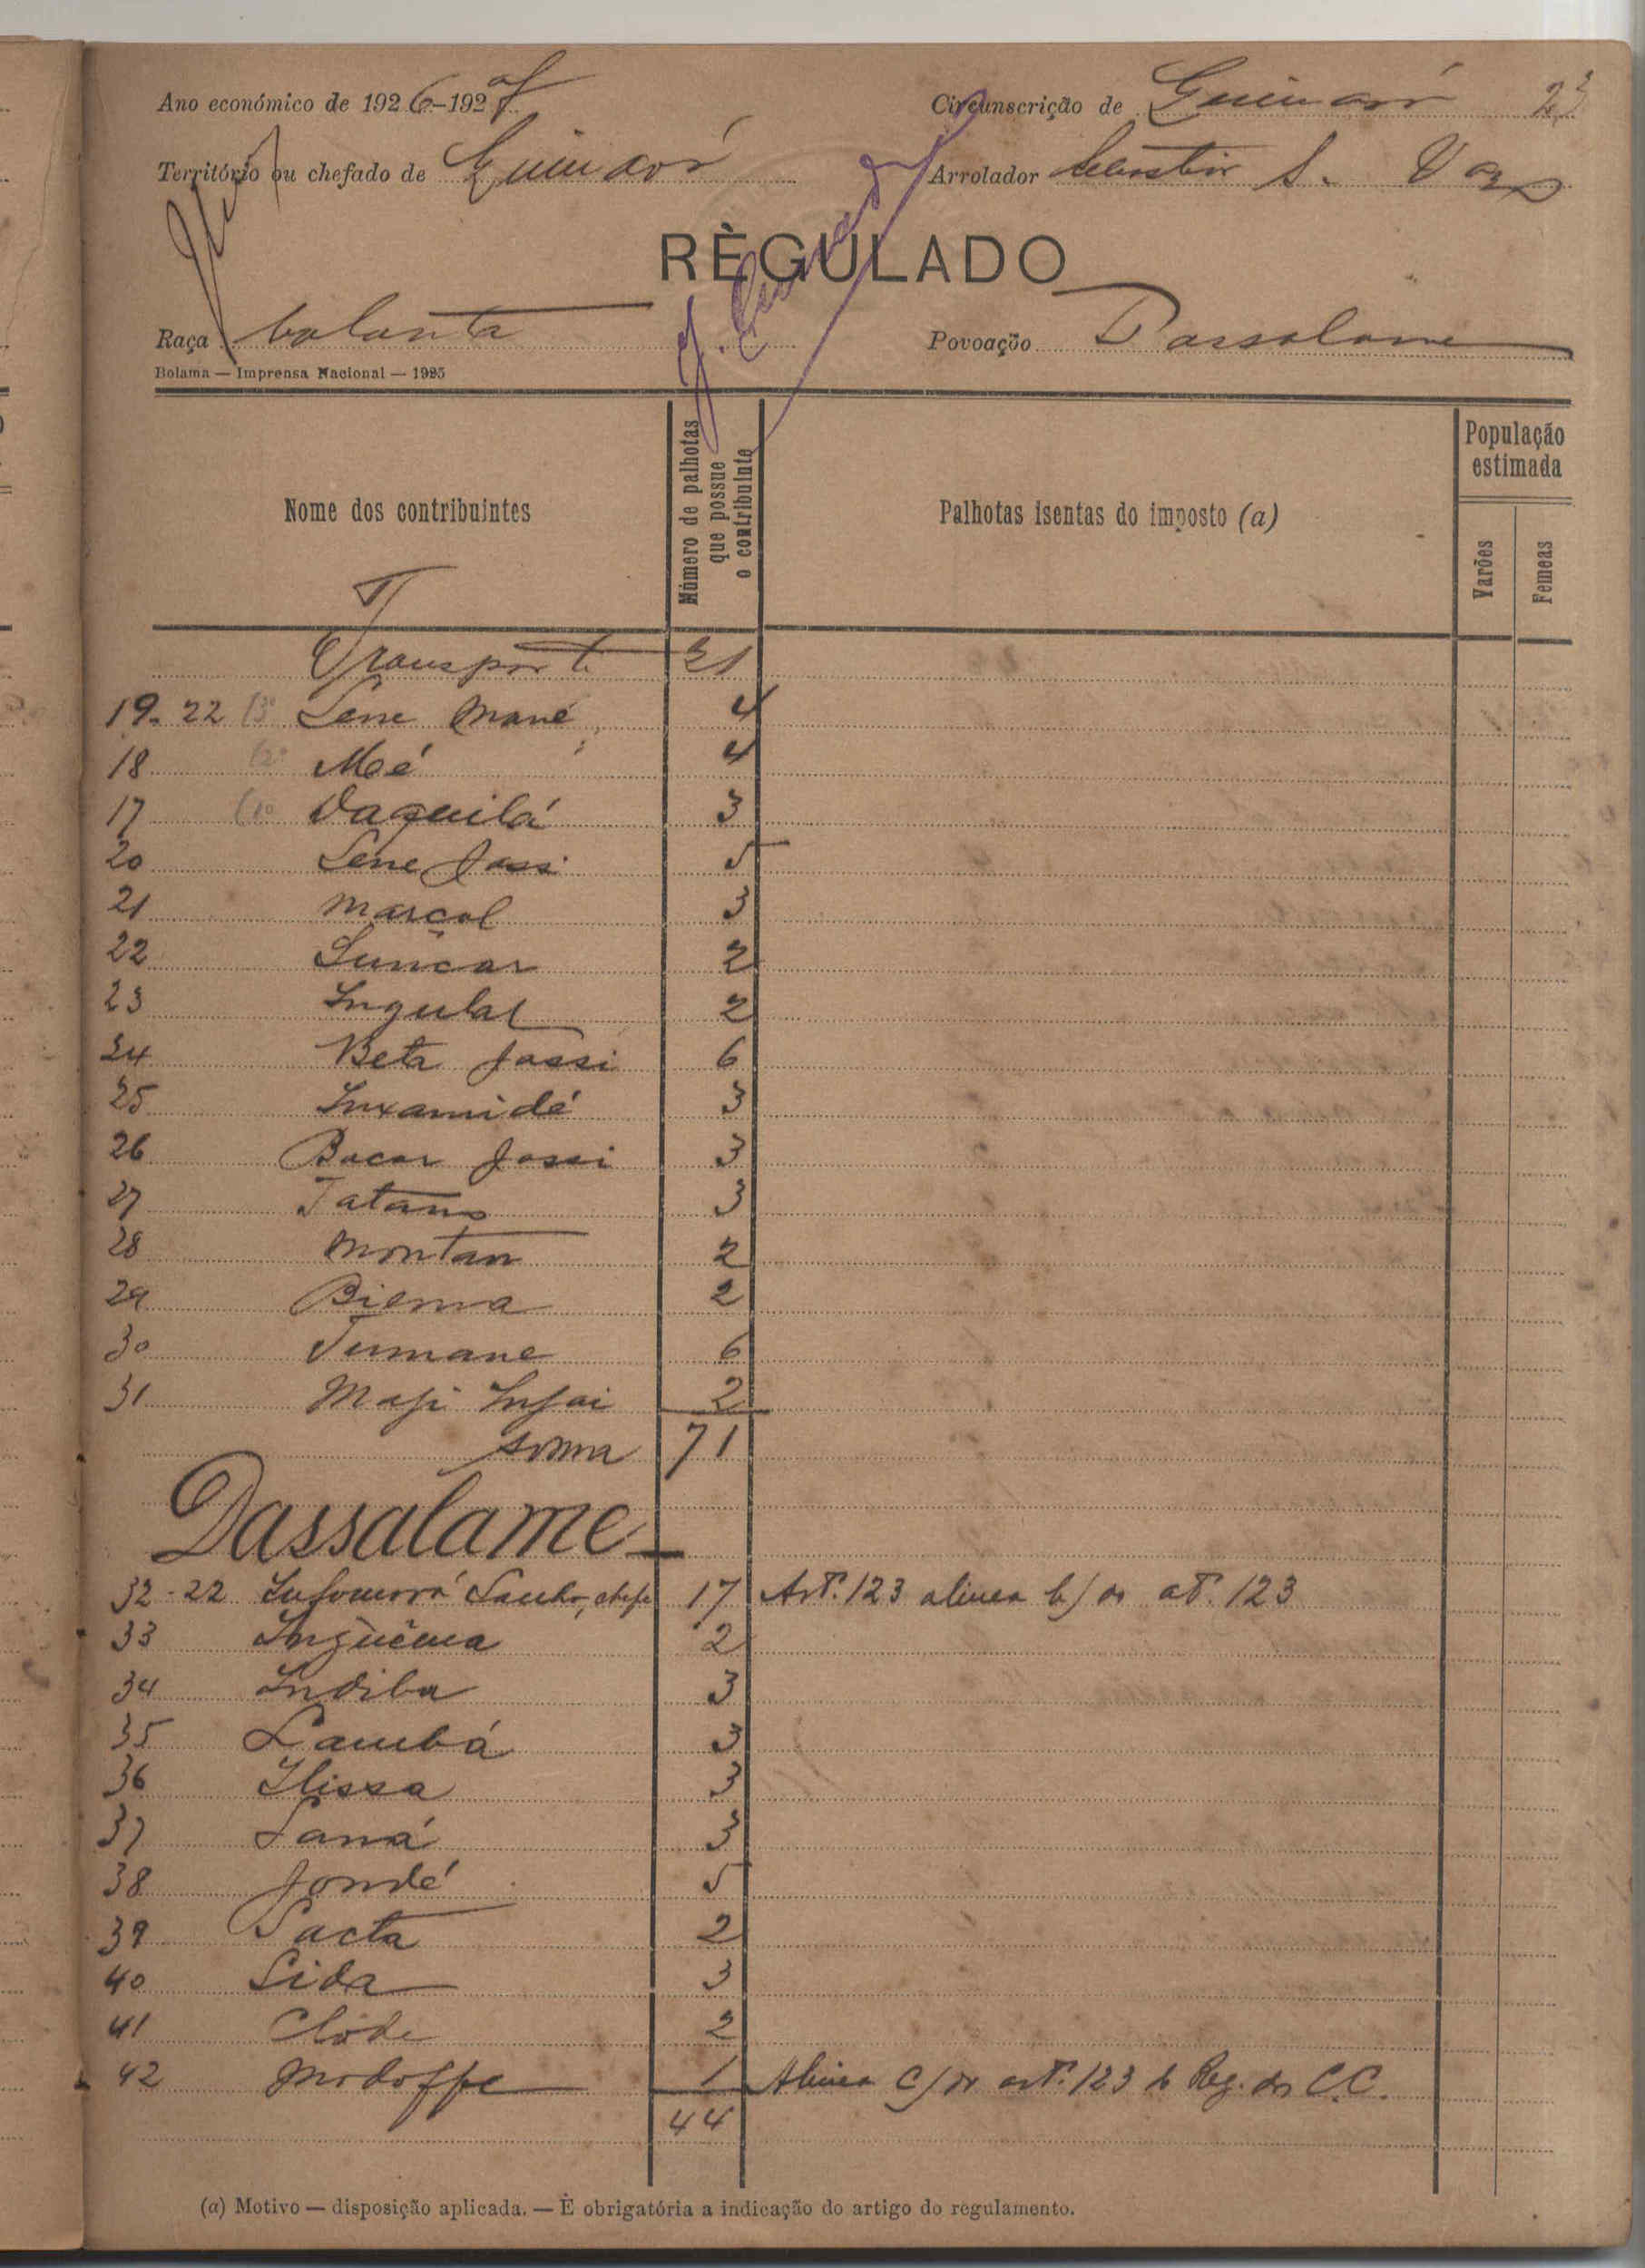 Ano económico de 1926-1927
Circunscrição de 23
Território ou chefado de
Arrolador S. Vaz
RÈGULADO
Raça balanta
Povoação Dassalame
Bolama — Imprensa Nacional — 1925
Nome dos contribuintes
Número de palhotas que possue o contribuinte
Palhotas isentas do imposto (a)
População estimada
Varões
Femeas
Transporte 21
19-22 (3º Sene Mané 4
18 (2º Meé 4
17 (1º Daquilá 3
20 Sene Jassi 5
21 Marçal 3
22 Suncar 2
23 Ingulat 2
24 Beta Jassi 6
25 Inxamidé 3
26 Bacar Jassi 3
27 Tatano 3
28 Montan 2
29 Bienna 2
30 Tumane 6
31 Mafi Infai 2
Soma 71
Dassalame
32-22 Sanho, chefe 17 Art. 123 alinea b) do at. 123
33 Ingüêma 2
34 Indiba 3
35 Lambá 3
36 Ilissa 3
37 Saná 3
38 Jondé 5
39 Pacta 2
40 Sida 3
41 Clode 2
42 Modoffe 1 Alinea c) do art. 123 do Reg. das C.C.
44
(a) Motivo — disposição aplicada. — È obrigatória a indicação do artigo do regulamento.